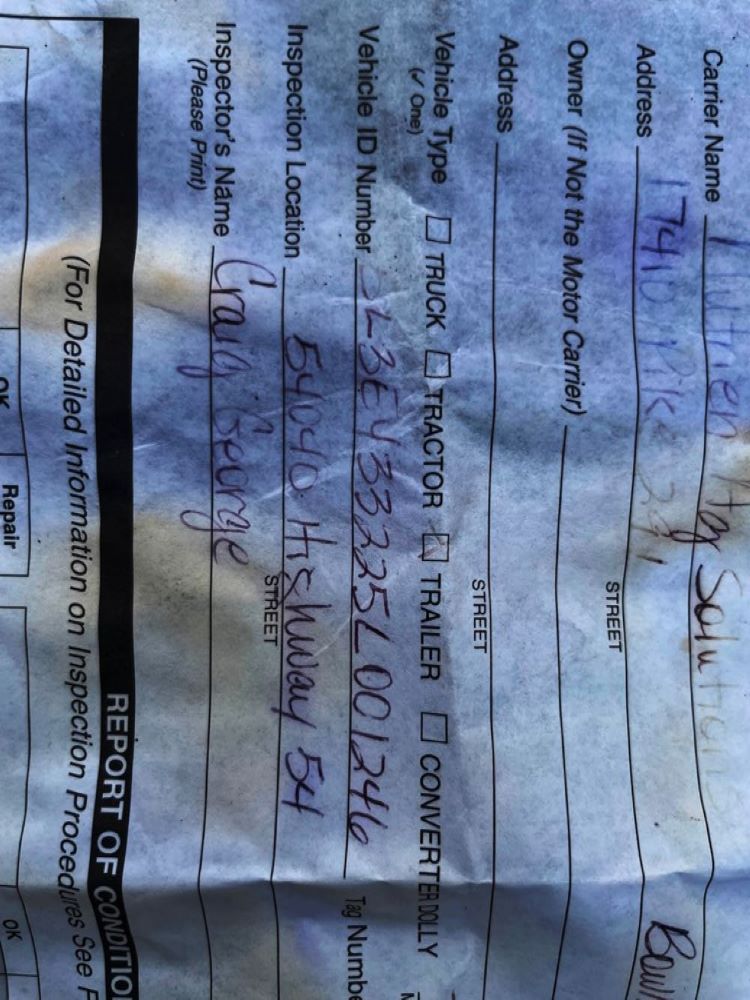 Carrier Name Nutrien Ag Solutions
Address 17410 Pike 291 Bowl
STREET
Owner (If Not the Motor Carrier)
Address
STREET
Vehicle Type ☐ TRUCK ☐ TRACTOR ☑ TRAILER ☐ CONVERTER DOLLY
(✓ One)
Vehicle ID Number L3EY33225L001246 Tag Numbe
Inspection Location 54040 Highway 54
STREET
Inspector's Name Craig George
(Please Print)
REPORT OF CONDITIO
(For Detailed Information on Inspection Procedures See
OK Repair OK